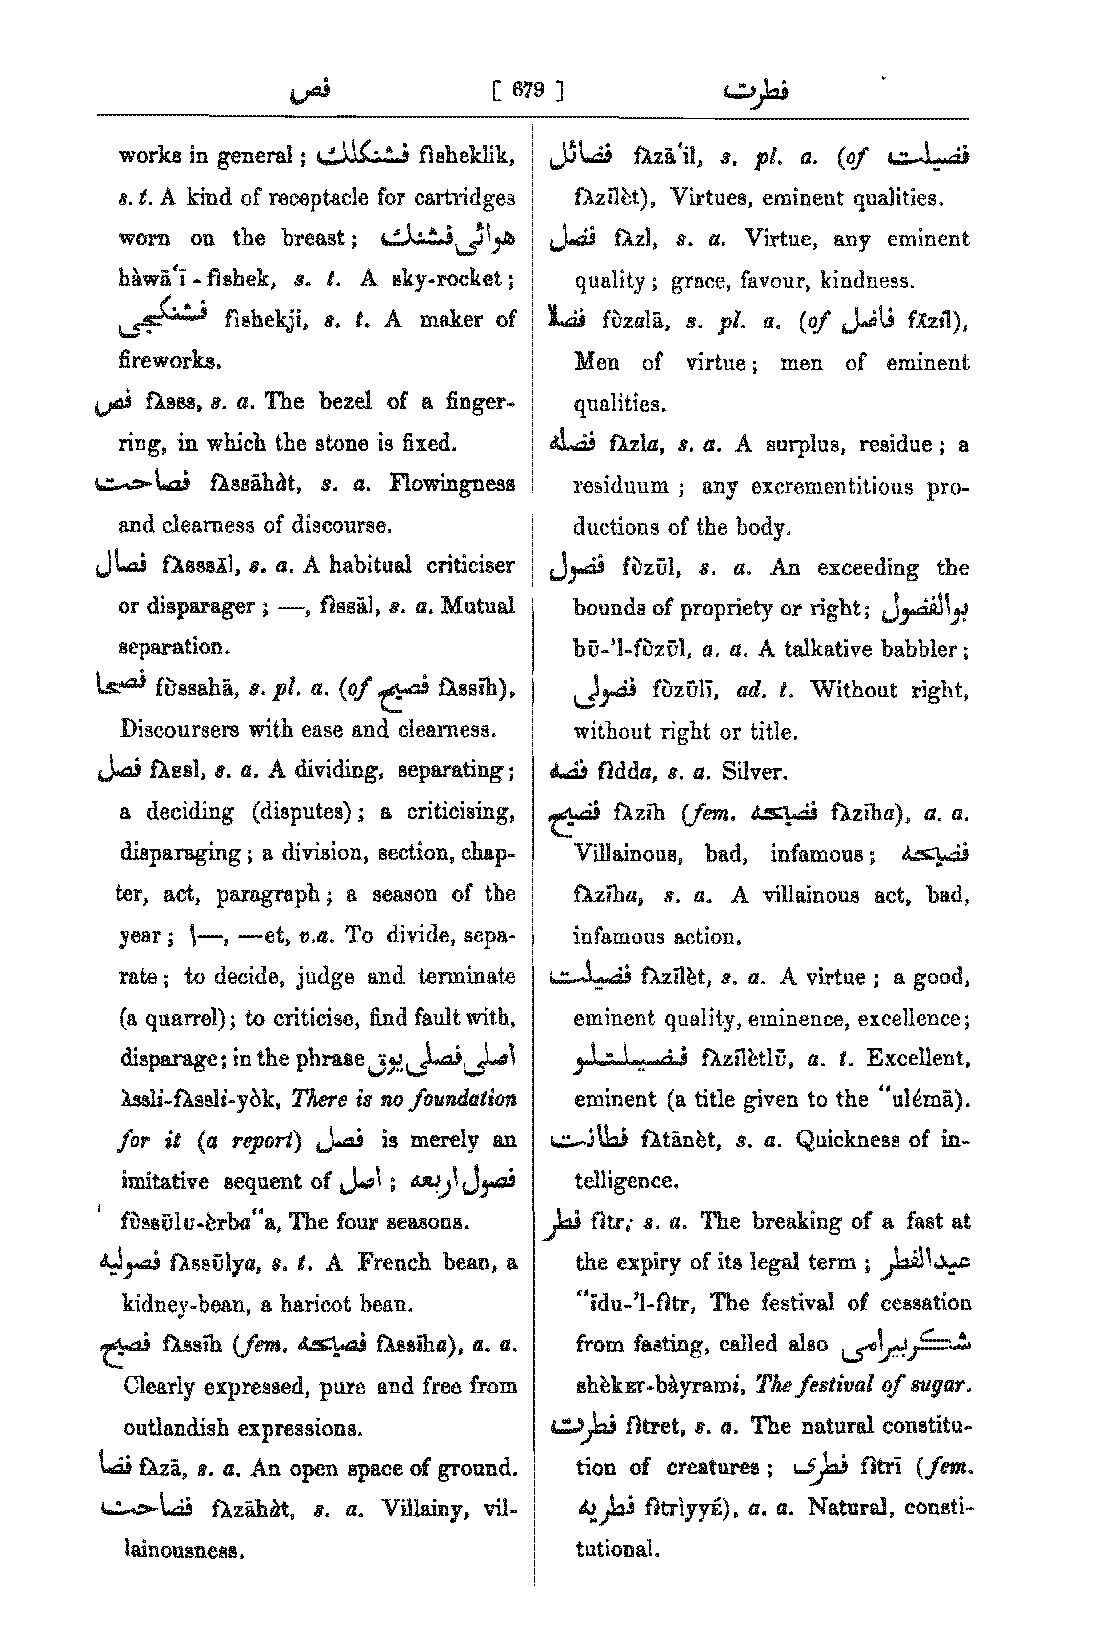 فص [ 679 ] فطرت
works in general; فشنكلك fisheklik,
s. t. A kind of receptacle for cartridges
worn on the breast; هوائی فشنك
hàwā‘ī-fishek, s. t. A sky-rocket;
فشنكجی fishekji, s. t. A maker of
fireworks.
فص fʌss, s. a. The bezel of a finger-
ring, in which the stone is fixed.
فصاحت fʌssāhàt, s. a. Flowingness
and clearness of discourse.
فصال fʌssāl, s. a. A habitual criticiser
or disparager; —, fìssāl, s. a. Mutual
separation.
فصحا fùssahā, s. pl. a. (of فصیح fʌssīh),
Discoursers with ease and clearness.
فصل fʌssl, s. a. A dividing, separating;
a deciding (disputes); a criticising,
disparaging; a division, section, chap-
ter, act, paragraph; a season of the
year; \—, —et, v.a. To divide, sepa-
rate; to decide, judge and terminate
(a quarrel); to criticise, find fault with,
disparage; in the phrase اصلی فصلی یوق
àssli-fʌssli-yòk, There is no foundation
for it (a report) فصل is merely an
imitative sequent of اصل; فصول اربعه
fùssūlu-èrba“a, The four seasons.
فصولیه fʌssūlya, s. t. A French bean, a
kidney-bean, a haricot bean.
فصیح fʌssīh (fem. فصیحه fʌssīha), a. a.
Clearly expressed, pure and free from
outlandish expressions.
فضا fʌzā, s. a. An open space of ground.
فضاحت fʌzāhàt, s. a. Villainy, vil-
lainousness.
فضائل fʌzā‘il, s. pl. a. (of فضیلت
fʌzīlèt), Virtues, eminent qualities.
فضل fʌzl, s. a. Virtue, any eminent
quality; grace, favour, kindness.
فضلا fùzalā, s. pl. a. (of فاضل fāzil),
Men of virtue; men of eminent
qualities.
فضله fʌzla, s. a. A surplus, residue; a
residuum; any excrementitious pro-
ductions of the body.
فضول fùzūl, s. a. An exceeding the
bounds of propriety or right; بوالفضول
bū-’l-fùzūl, a. a. A talkative babbler;
فضولی fùzūlī, ad. t. Without right,
without right or title.
فضه fìdda, s. a. Silver.
فضیح fʌzīh (fem. فضیحه fʌzīha), a. a.
Villainous, bad, infamous; فضیحه
fʌzīha, s. a. A villainous act, bad,
infamous action.
فضیلت fʌzīlèt, s. a. A virtue; a good,
eminent quality, eminence, excellence;
فضیلتلو fʌzīlètlū, a. t. Excellent,
eminent (a title given to the “ulémā).
فطانت fʌtānèt, s. a. Quickness of in-
telligence.
فطر fìtr, s. a. The breaking of a fast at
the expiry of its legal term; عید الفطر
“īdu-’l-fìtr, The festival of cessation
from fasting, called also شكر بیرامی
shèkᴇr-bàyrami, The festival of sugar.
فطرت fìtret, s. a. The natural constitu-
tion of creatures; فطری fìtrī (fem.
فطریه fìtrìyyé), a. a. Natural, consti-
tutional.